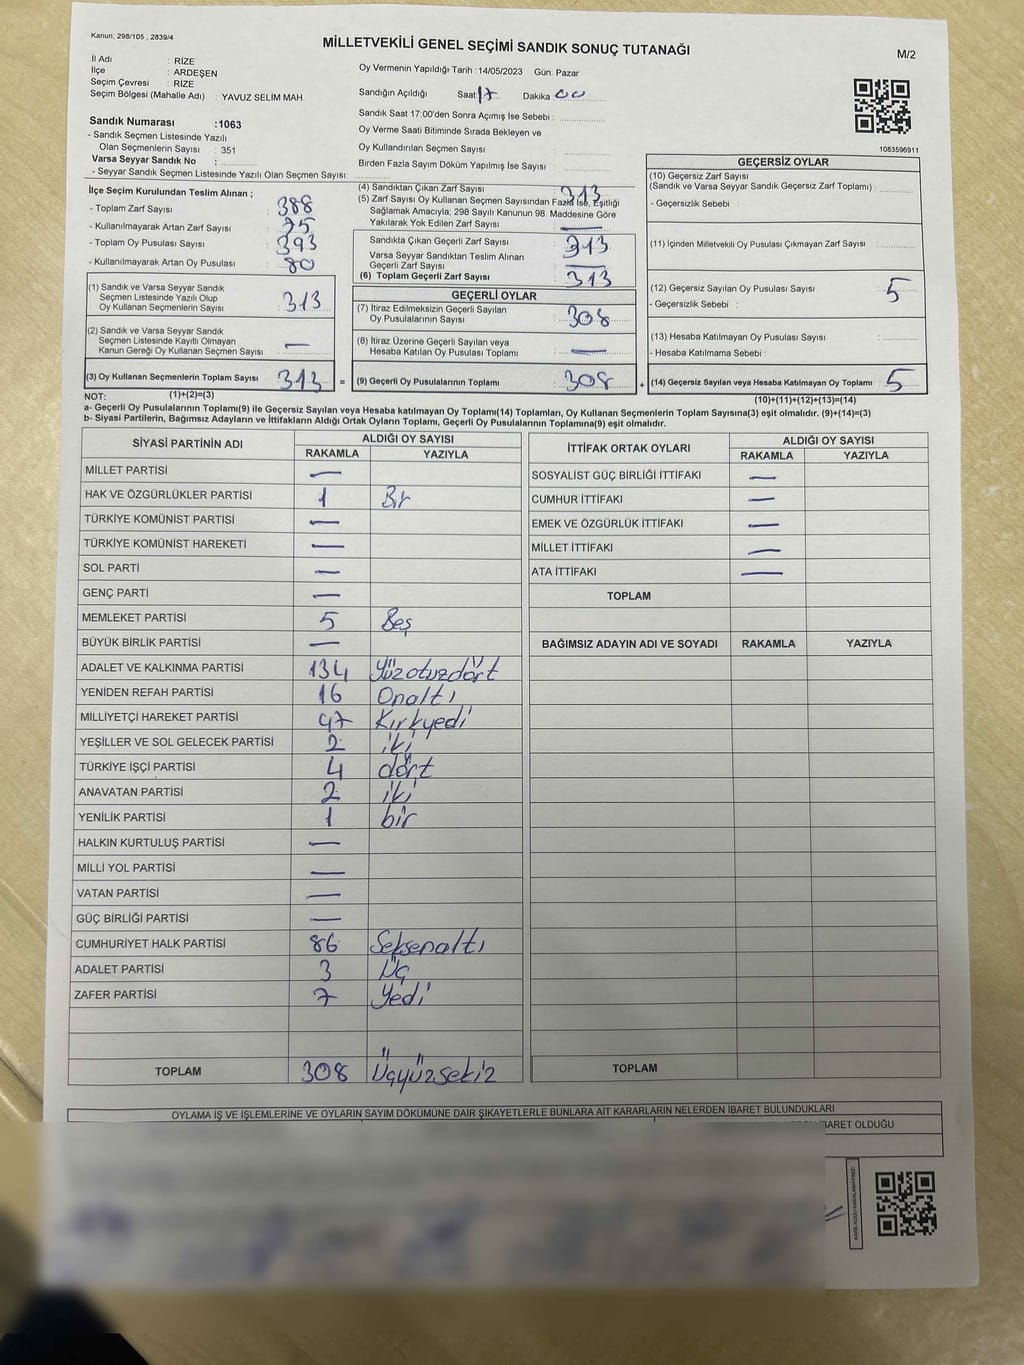 Kanun, 298/105 , 2839/4
MİLLETVEKİLİ GENEL SEÇİMİ SANDIK SONUÇ TUTANAĞI
M/2
İl Adı : RİZE
İlçe : ARDEŞEN
Seçim Çevresi : RİZE
Seçim Bölgesi (Mahalle Adı) : YAVUZ SELİM MAH.
Oy Vermenin Yapıldığı Tarih : 14/05/2023 Gün: Pazar
Sandığın Açıldığı Saat 17 Dakika 00
Sandık Saat 17:00'den Sonra Açımış İse Sebebi :
Oy Verme Saati Bitiminde Sırada Bekleyen ve
Oy Kullandırılan Seçmen Sayısı :
Birden Fazla Sayım Döküm Yapılmış İse Sayısı :
Sandık Numarası :1063
- Sandık Seçmen Listesinde Yazılı
Olan Seçmenlerin Sayısı : 351
Varsa Seyyar Sandık No :
- Seyyar Sandık Seçmen Listesinde Yazılı Olan Seçmen Sayısı:
1083596911
İlçe Seçim Kurulundan Teslim Alınan ;
- Toplam Zarf Sayısı : 388
- Kullanılmayarak Artan Zarf Sayısı : 75
- Toplam Oy Pusulası Sayısı : 393
- Kullanılmayarak Artan Oy Pusulası : 80
(1) Sandık ve Varsa Seyyar Sandık
Seçmen Listesinde Yazılı Olup
Oy Kullanan Seçmenlerin Sayısı : 313
(2) Sandık ve Varsa Seyyar Sandık
Seçmen Listesinde Kayıtlı Olmayan
Kanun Gereği Oy Kullanan Seçmen Sayısı : —
(3) Oy Kullanan Seçmenlerin Toplam Sayısı 313 =
(1)+(2)=(3)
(4) Sandıktan Çıkan Zarf Sayısı : 313
(5) Zarf Sayısı Oy Kullanan Seçmen Sayısından Fazla İse, Eşitliği
Sağlamak Amacıyla, 298 Sayılı Kanunun 98. Maddesine Göre
Yakılarak Yok Edilen Zarf Sayısı : —
Sandıkta Çıkan Geçerli Zarf Sayısı : 313
Varsa Seyyar Sandıktan Teslim Alınan
Geçerli Zarf Sayısı : —
(6) Toplam Geçerli Zarf Sayısı : 313
GEÇERLİ OYLAR
(7) İtiraz Edilmeksizin Geçerli Sayılan
Oy Pusulalarının Sayısı : 308
(8) İtiraz Üzerine Geçerli Sayılan veya
Hesaba Katılan Oy Pusulası Toplamı : —
(9) Geçerli Oy Pusulalarının Toplamı : 308 +
GEÇERSİZ OYLAR
(10) Geçersiz Zarf Sayısı
(Sandık ve Varsa Seyyar Sandık Geçersiz Zarf Toplamı) :
- Geçersizlik Sebebi :
(11) İçinden Milletvekili Oy Pusulası Çıkmayan Zarf Sayısı :
(12) Geçersiz Sayılan Oy Pusulası Sayısı : 5
- Geçersizlik Sebebi :
(13) Hesaba Katılmayan Oy Pusulası Sayısı :
- Hesaba Katılmama Sebebi :
(14) Geçersiz Sayılan veya Hesaba Katılmayan Oy Toplamı : 5
(10)+(11)+(12)+(13)=(14)
NOT:
a- Geçerli Oy Pusulalarının Toplamı(9) ile Geçersiz Sayılan veya Hesaba katılmayan Oy Toplamı(14) Toplamları, Oy Kullanan Seçmenlerin Toplam Sayısına(3) eşit olmalıdır. (9)+(14)=(3)
b- Siyasi Partilerin, Bağımsız Adayların ve İttifakların Aldığı Ortak Oyların Toplamı, Geçerli Oy Pusulalarının Toplamına(9) eşit olmalıdır.
SİYASİ PARTİNİN ADI ALDIĞI OY SAYISI
RAKAMLA YAZIYLA
MİLLET PARTİSİ —
HAK VE ÖZGÜRLÜKLER PARTİSİ 1 Bir
TÜRKİYE KOMÜNİST PARTİSİ —
TÜRKİYE KOMÜNİST HAREKETİ —
SOL PARTİ —
GENÇ PARTİ —
MEMLEKET PARTİSİ 5 Beş
BÜYÜK BİRLİK PARTİSİ —
ADALET VE KALKINMA PARTİSİ 134 Yüzotuzdört
YENİDEN REFAH PARTİSİ 16 Onaltı
MİLLİYETÇİ HAREKET PARTİSİ 47 Kırkyedi
YEŞİLLER VE SOL GELECEK PARTİSİ 2 iki
TÜRKİYE İŞÇİ PARTİSİ 4 dört
ANAVATAN PARTİSİ 2 iki
YENİLİK PARTİSİ 1 bir
HALKIN KURTULUŞ PARTİSİ —
MİLLİ YOL PARTİSİ —
VATAN PARTİSİ —
GÜÇ BİRLİĞİ PARTİSİ —
CUMHURİYET HALK PARTİSİ 86 Seksenaltı
ADALET PARTİSİ 3 Üç
ZAFER PARTİSİ 7 Yedi
TOPLAM 308 Üçyüzsekiz
İTTİFAK ORTAK OYLARI ALDIĞI OY SAYISI
RAKAMLA YAZIYLA
SOSYALİST GÜÇ BİRLİĞİ İTTİFAKI —
CUMHUR İTTİFAKI —
EMEK VE ÖZGÜRLÜK İTTİFAKI —
MİLLET İTTİFAKI —
ATA İTTİFAKI —
TOPLAM
BAĞIMSIZ ADAYIN ADI VE SOYADI RAKAMLA YAZIYLA
TOPLAM
OYLAMA İŞ VE İŞLEMLERİNE VE OYLARIN SAYIM DÖKÜMÜNE DAİR ŞİKAYETLERLE BUNLARA AİT KARARLARIN NELERDEN İBARET BULUNDUKLARI
İBARET OLDUĞU